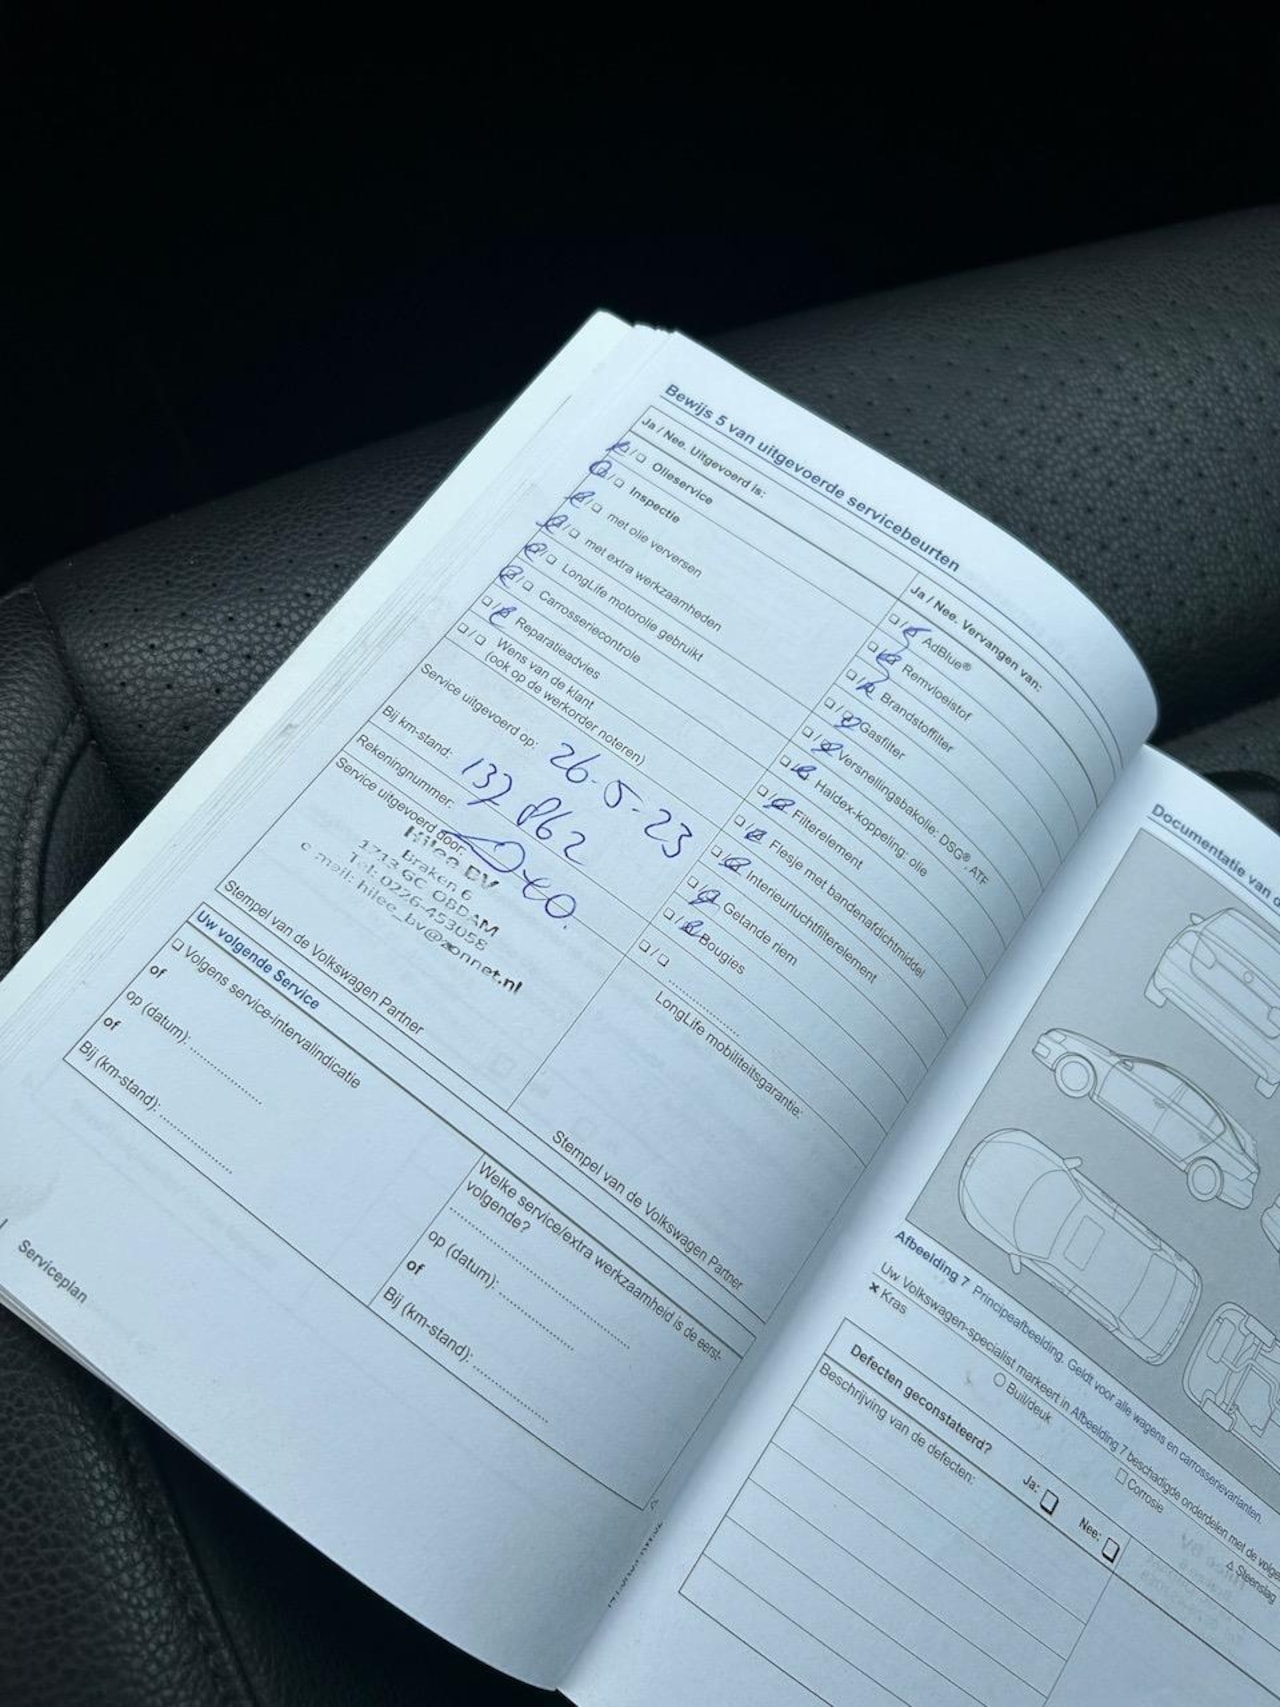 Bewijs 5 van uitgevoerde servicebeurten
Ja / Nee. Uitgevoerd is:
Olieservice
Inspectie
met olie verversen
met extra werkzaamheden
LongLife motorolie gebruikt
Carrosseriecontrole
Reparatieadvies
Wens van de klant
(ook op de werkorder noteren)
Service uitgevoerd op: 26-5-23
Bij km-stand: 137 862
Rekeningnummer:
Service uitgevoerd door:
Hilee BV
Braken 6
1743 GC OBDAM
Tel: 0226-453058
e-mail: hilee_bv@zonnet.nl
Stempel van de Volkswagen Partner
Ja / Nee. Vervangen van:
AdBlue®
Remvloeistof
Brandstoffilter
Gasfilter
Versnellingsbakolie: DSG®, ATF
Haldex-koppeling: olie
Filterelement
Flesje met bandenafdichtmiddel
Interieurluchtfilterelement
Getande riem
Bougies
LongLife mobiliteitsgarantie:
Stempel van de Volkswagen Partner
Uw volgende Service
Volgens service-intervalindicatie
of
op (datum):
of
Bij (km-stand):
Welke service/extra werkzaamheid is de eerst-
volgende?
op (datum):
of
Bij (km-stand):
Serviceplan
Documentatie van
Afbeelding 7 Principeafbeelding. Geldt voor alle wagens en carrosserievarianten.
Uw Volkswagen-specialist markeert in Afbeelding 7 beschadigde onderdelen met de
x Kras
Buil/deuk
Corrosie
Steenslag
Defecten geconstateerd? Ja: Nee:
Beschrijving van de defecten: